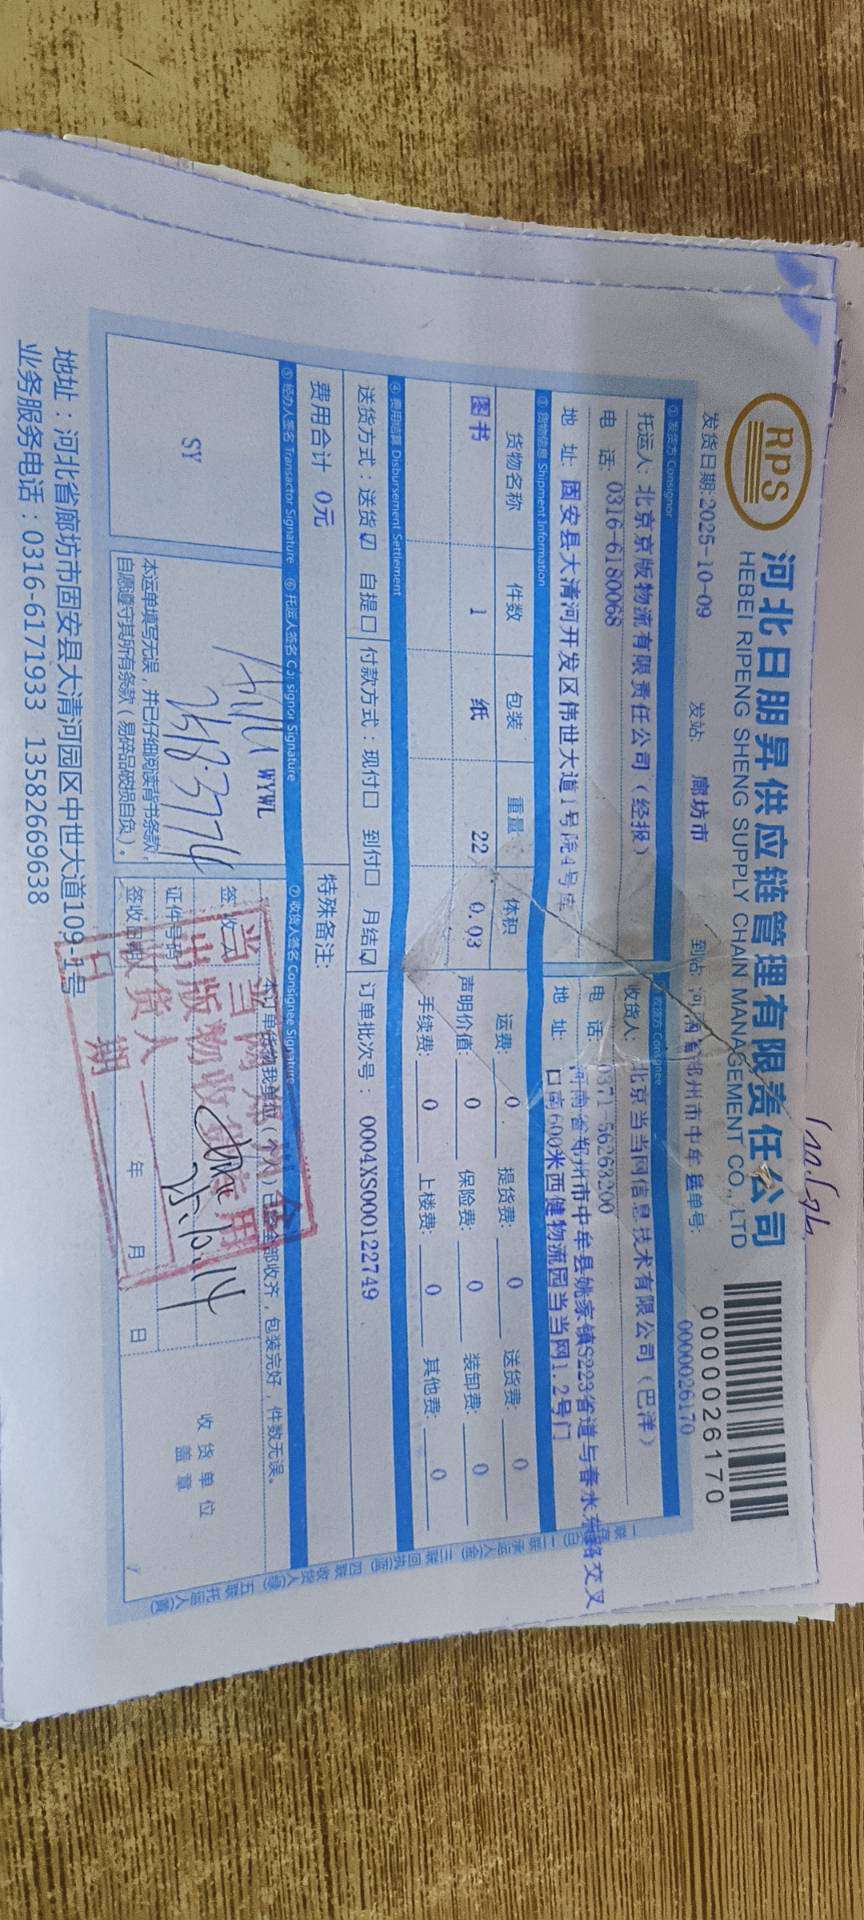 RPS
河北日朋昇供应链管理有限责任公司
HEBEI RIPENG SHENG SUPPLY CHAIN MANAGEMENT CO., LTD
0000026170
发货日期:2025-10-09 发站: 廊坊市 到站:河南省郑州市中牟县 运单号: 0000026170
① 发货方 Consignor
托运人: 北京京版物流有限责任公司(经报)
电 话: 0316-6180068
地 址: 固安县大清河开发区伟世大道1号院4号库
② 收货方 Consignee
收货人: 北京当当网信息技术有限公司(巴洋)
电 话: 0371-56263200
地 址: 河南省郑州市中牟县姚家镇S223省道与春水东路交叉
口南600米西健物流园当当网1.2号门
③ 货物信息 Shipment Information
货物名称 件数 包装 重量 体积
图书 1 纸 22 0.03
运费: 0 提货费: 0 送货费: 0
声明价值: 0 保险费: 0 装卸费: 0
手续费: 0 上楼费: 0 其他费: 0
④ 费用结算 Disbursement Settlement
送货方式:送货☑ 自提☐ 付款方式:现付☐ 到付☐ 月结☑ 订单批次号: 0004XS000122749
费用合计 0元 特殊备注:
⑤ 经办人签名 Transactor Signature
SY
⑥ 托运人签名 Consignor Signature
WYWL
本运单填写无误,并已仔细阅读背书条款,
自愿遵守其所有条款(易碎品破损自负)。
⑦ 收货人签名 Consignee Signature
本订单货物我单位(个人)已经全部收齐,包装完好,件数无误。
签 收
证件号码
签收日期 年 月 日
25.10.14
收货单位
盖章
当当网
出版物收货专用
收货人
日 期
一联 二联承运人 三联回执 四联收货人 五联托运人
地址:河北省廊坊市固安县大清河园区中世大道109-1号
业务服务电话:0316-6171933 13582669638